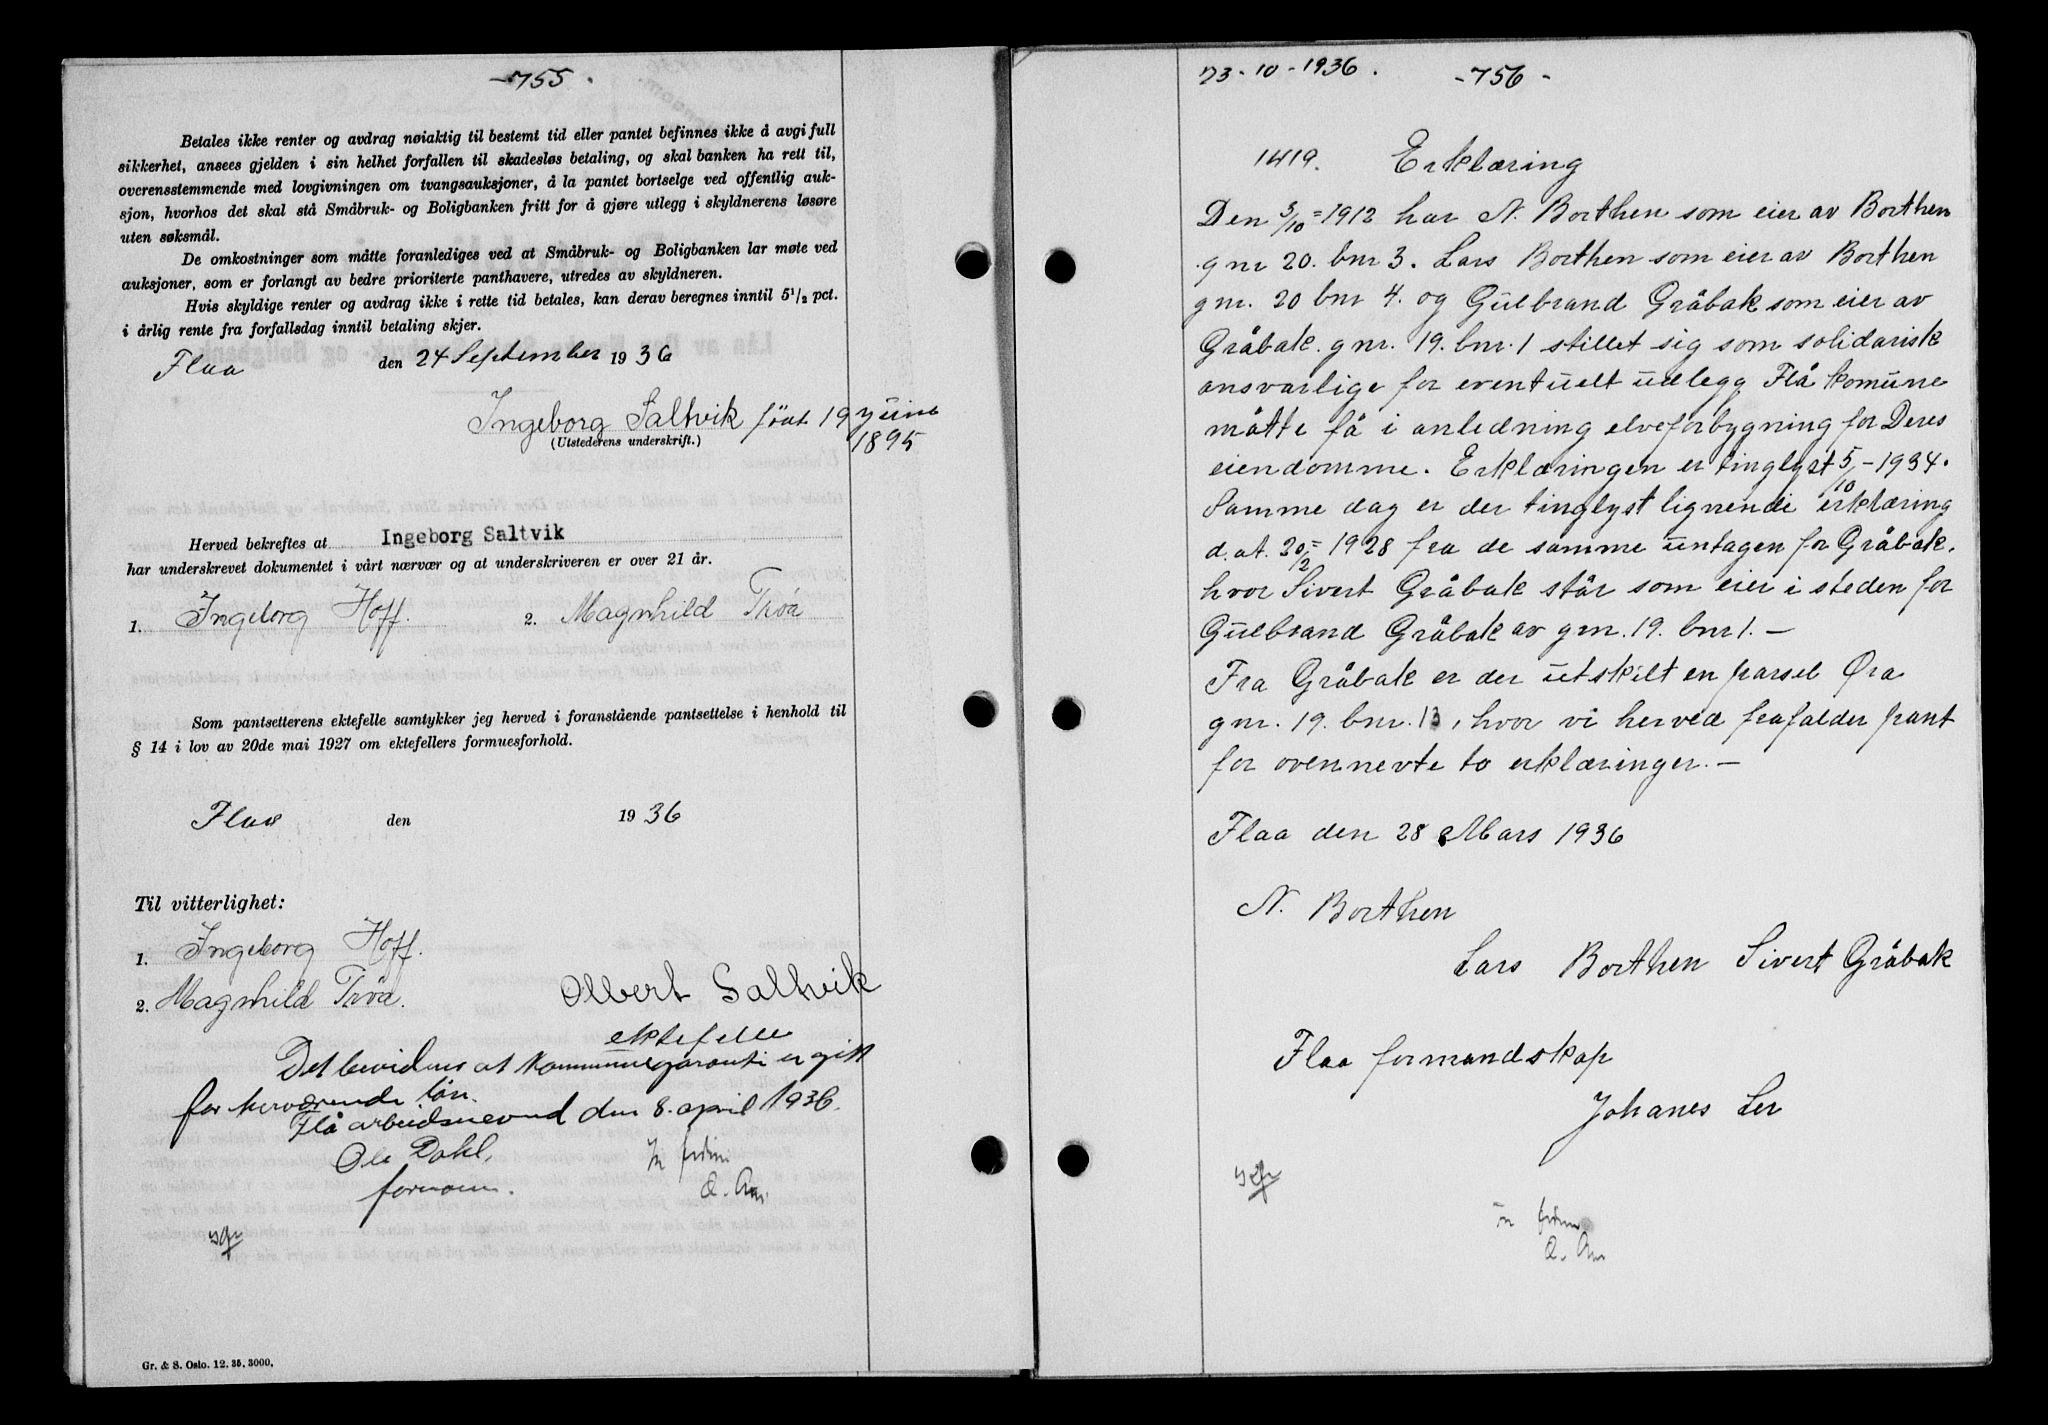 -755-
Betales ikke renter og avdrag nøiaktig til bestemt tid eller pantet befinnes ikke å avgi full
sikkerhet, ansees gjelden i sin helhet forfallen til skadesløs betaling, og skal banken ha rett til,
overensstemmende med lovgivningen om tvangsauksjoner, å la pantet bortselge ved offentlig auk-
sjon, hvorhos det skal stå Småbruk- og Boligbanken fritt for å gjøre utlegg i skyldnerens løsøre
uten søksmål.
De omkostninger som måtte foranlediges ved at Småbruk- og Boligbanken lar møte ved
auksjoner, som er forlangt av bedre prioriterte panthavere, utredes av skyldneren.
Hvis skyldige renter og avdrag ikke i rette tid betales, kan derav beregnes inntil 5 1/2 pct.
i årlig rente fra forfallsdag inntil betaling skjer.
Flaa den 24 September 1936
Ingeborg Saltvik født 19 juni
(Utstederens underskrift.) 1895
Herved bekreftes at Ingeborg Saltvik
har underskrevet dokumentet i vårt nærvær og at underskriveren er over 21 år.
1. Ingeborg Hoff. 2. Magnhild Trøa
Som pantsetterens ektefelle samtykker jeg herved i foranstående pantsettelse i henhold til
§ 14 i lov av 20de mai 1927 om ektefellers formuesforhold.
Flaa den 1936
Til vitterlighet:
1. Ingeborg Hoff.
2. Magnhild Trøa. Olbert Saltvik
ektefelle
Det bevidnes at kommunegaranti er gitt
for herværende lån.
Flå arbeidsnevnd den 8. april 1936.
Ole Dahl,
formann.
Gr. & S. Oslo. 12. 35. 3000.
23-10-1936. -756-
1419. Erklæring
Den 3/10-1912 har N. Borthen som eier av Borthen
gnr 20. bnr 3. Lars Borthen som eier av Borthen
gnr. 20 bnr 4. og Gulbrand Gråbak som eier av
Gråbak. gnr. 19. bnr. 1 stillet sig som solidarisk
ansvarlige for eventuelt udlegg Flå komune
måtte få i anledning elveforbygning for Deres
eiendomme. Erklæringen er tinglyst 5/10-1934.
Samme dag er der tinglyst lignende erklæring
dat. 20/2-1928 fra de samme untagen for Gråbak.
hvor Sivert Gråbak står som eier i steden for
Gulbrand Gråbak av gnr. 19. bnr 1. -
Fra Gråbak er der utskilt en parsel Øra
gnr. 19. bnr. 13, hvor vi herved frafalder pant
for ovennevte to erklæringer. -
Flaa den 28 Mars 1936
N. Borthen
Lars Borthen Sivert Gråbak
Flaa formandskap
Johanes Ler